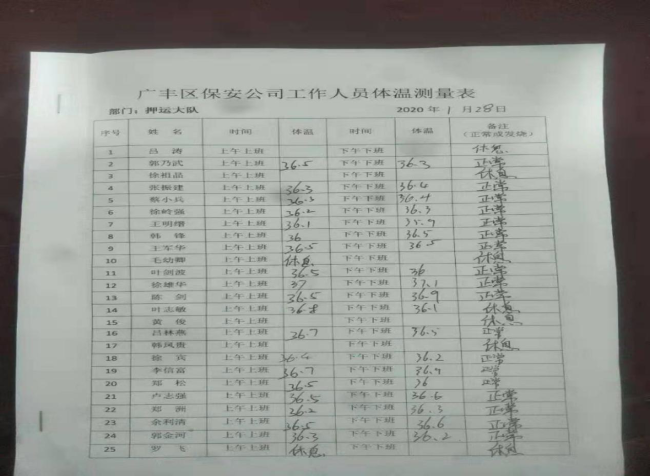 广丰区保安公司工作人员体温测量表
部门：押运大队 2020 年 1 月 28 日
序号 姓 名 时间 体温 时间 体温 备注（正常或发烧）
1 吕 涛 上午上班 下午下班 休息
2 郭乃武 上午上班 36.5 下午下班 36.3 正常
3 徐相品 上午上班 下午下班 休息
4 张振建 上午上班 36.3 下午下班 36.4 正常
5 蔡小兵 上午上班 36.3 下午下班 36.4 正常
6 徐岭强 上午上班 36.2 下午下班 正常
7 王明增 上午上班 36.1 下午下班 正常
8 韩 锋 上午上班 36 下午下班 36.5 正常
9 王军华 上午上班 36.5 下午下班 36.5 正常
10 毛幼卿 上午上班 休息 下午下班 休息
11 叶剑波 上午上班 36.5 下午下班 36 正常
12 徐雄华 上午上班 37 下午下班 37.1 正常
13 陈 剑 上午上班 36.5 下午下班 36.9 正常
14 叶志敏 上午上班 下午下班 36.1 休息
15 黄 俊 上午上班 下午下班 休息
16 吕林燕 上午上班 36.7 下午下班 36.5 正常
17 韩凤贵 上午上班 下午下班 休息
18 徐 宾 上午上班 36.4 下午下班 36.2 正常
19 李信富 上午上班 36.7 下午下班 36.4 正常
20 郑 松 上午上班 36.5 下午下班 36 正常
21 卢志强 上午上班 36.5 下午下班 36.6 正常
22 郑 洲 上午上班 36.2 下午下班 36.3 正常
23 余利清 上午上班 36.5 下午下班 36.6 正常
24 郭金河 上午上班 36.3 下午下班 36.2 正常
25 罗 飞 上午上班 休息 下午下班 休息